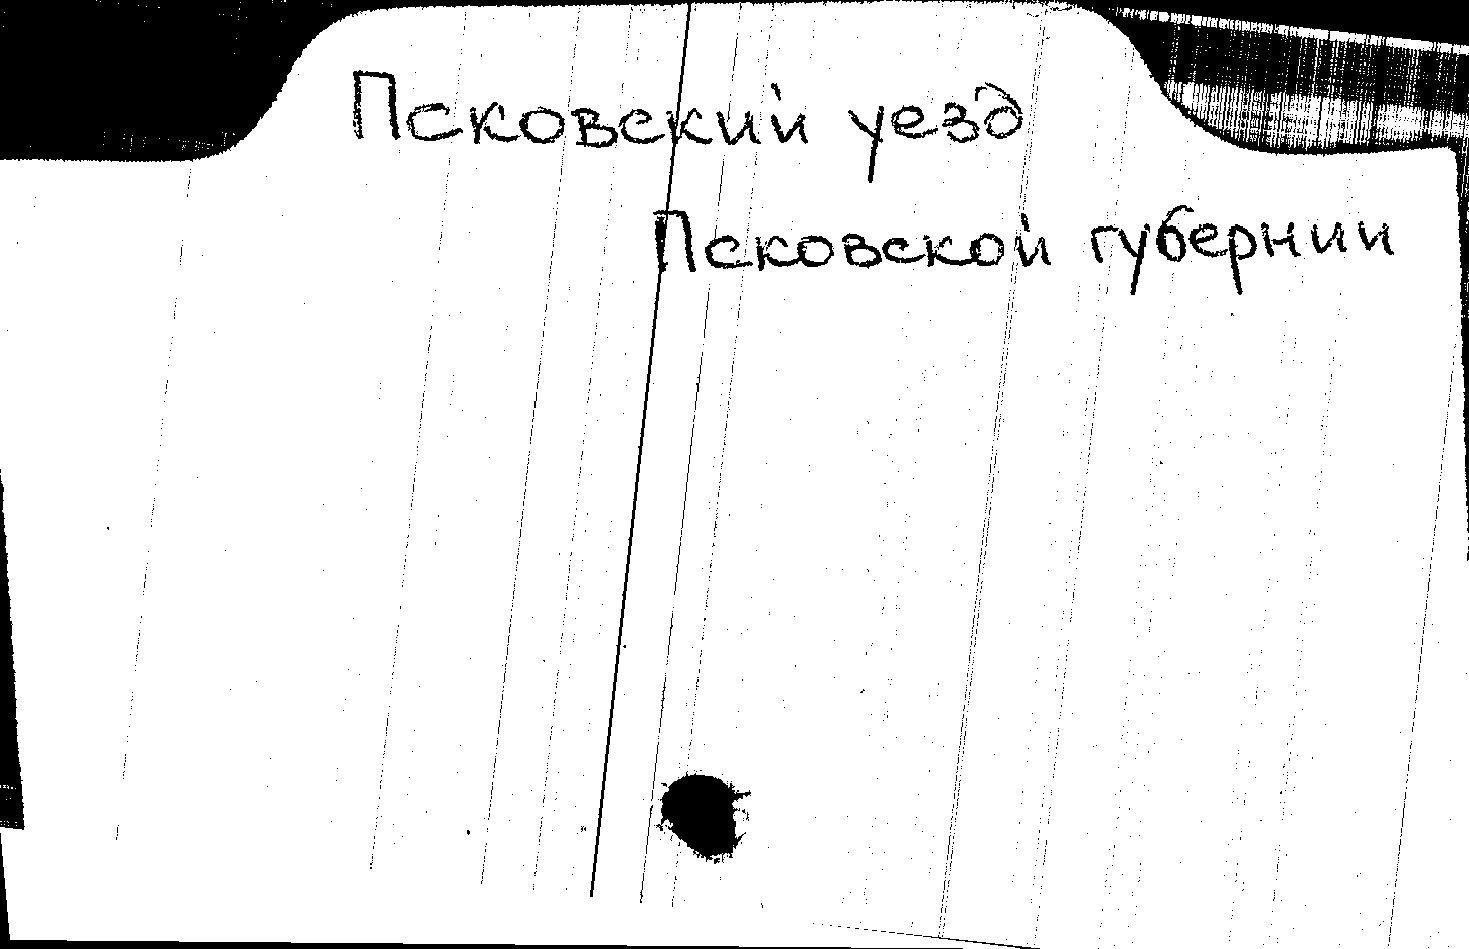 Псковский уезд
Псковской губернии